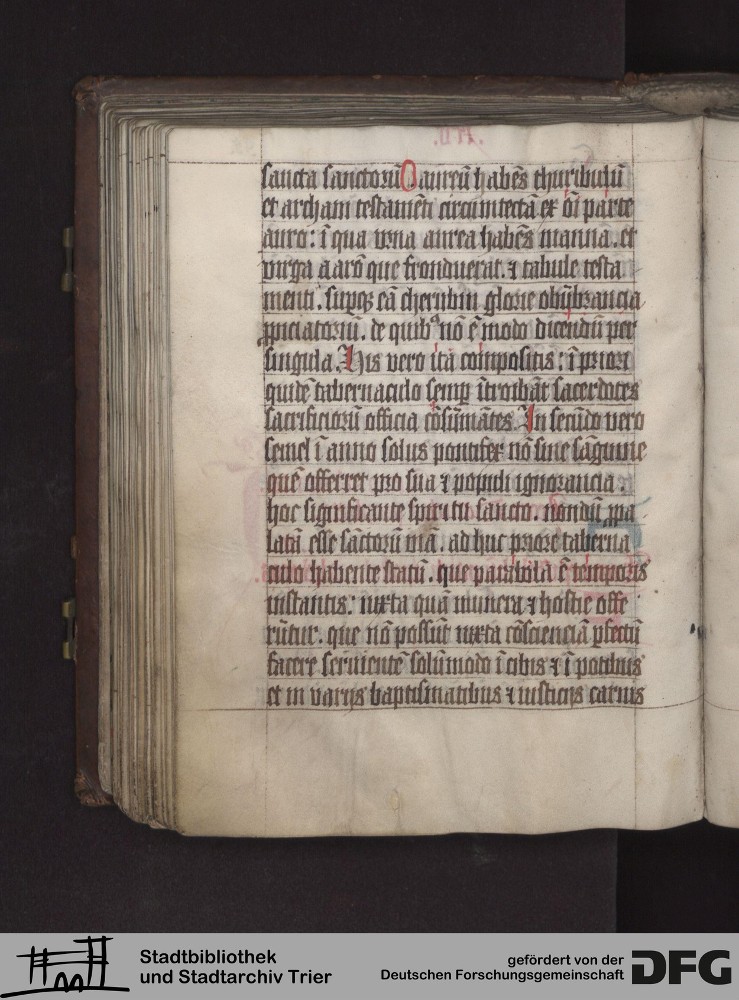 sancta sanctorū. aureū habēs thuribulū
et archam testamēti circumtectā ex oī parte
auro: ī qua vrna aurea habēs manna. et
virga aarō que fronduerat. ⁊ tabule testa
menti. supqꝫ eā cherubin glorie obūbrancia
ꝓpiciatoriū. de quibꝰ nō ē modo dicendū per
singula. His vero ita compositis: ī priori
quidē tabernaculo semꝑ ītroibāt sacerdotes
sacrificiorū officia cōsūmātes. In secūdo vero
semel ī anno solus pontifex nō sine sāguine
quē offerret pro sua ⁊ populi ignorancia.
hoc significante spiritu sancto. nondū ꝓpa
latā esse sāctorū viā. adhuc priore taberna
culo habente statū. que parabola ē temporis
instantis: iuxta quā munera ⁊ hostie offe
rūtur. que nō possūt iuxta cōscienciā ꝑfectū
facere seruientē solūmodo ī cibis ⁊ ī potibus
et in varijs baptismatibus ⁊ iusticijs carnis
Stadtbibliothek
und Stadtarchiv Trier
gefördert von der
Deutschen Forschungsgemeinschaft
DFG